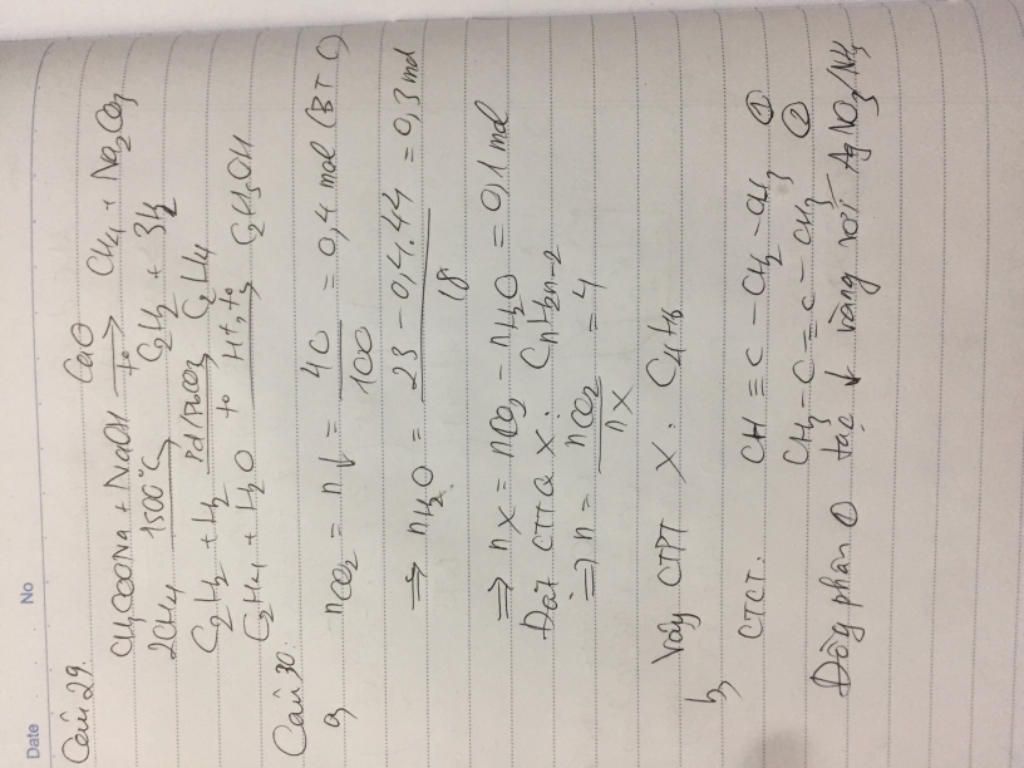 Date No
Câu 29.
CH3COONa + NaOH CaO/t° → CH4 + Na2CO3
2CH4 1500°C → C2H2 + 3H2
C2H2 + H2 Pd/PbCO3/t° → C2H4
C2H4 + H2O H+, t° → C2H5OH
Câu 30.
a, nCO2 = n↓ = 40/100 = 0,4 mol (BT C)
⇒ nH2O = (23 - 0,4.44)/18 = 0,3 mol
⇒ nX = nCO2 - nH2O = 0,1 mol
Đặt CTTQ X: CnH2n-2
⇒ n = nCO2/nX = 4
Vậy CTPT X: C4H6
b,
CTCT: CH ≡ C - CH2 - CH3 ①
CH3 - C ≡ C - CH3 ②
Đồng phân ① tác ↓ vàng với AgNO3/NH3